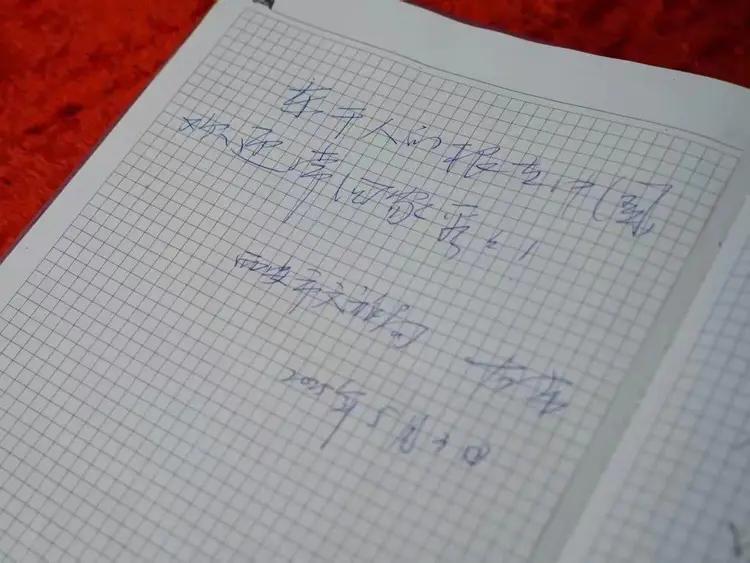 东干人的根在中国,
欢迎常回家看看!
西安市文物局
2005年5月3日